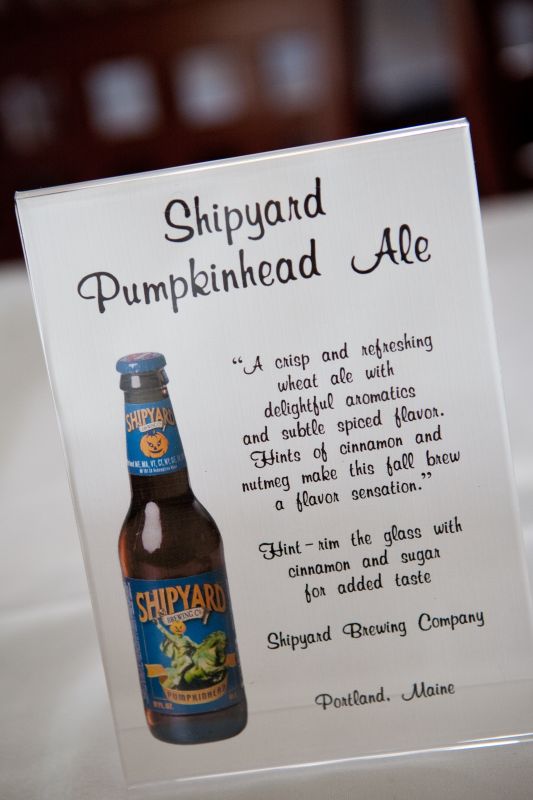 Shipyard
Pumpkinhead Ale
“A crisp and refreshing
wheat ale with
delightful aromatics
and subtle spiced flavor.
Hints of cinnamon and
nutmeg make this fall brew
a flavor sensation.”
Hint-rim the glass with
cinnamon and sugar
for added taste
Shipyard Brewing Company
Portland, Maine
SHIPYARD
SHIPYARD
BREWING CO.
PUMPKINHEAD